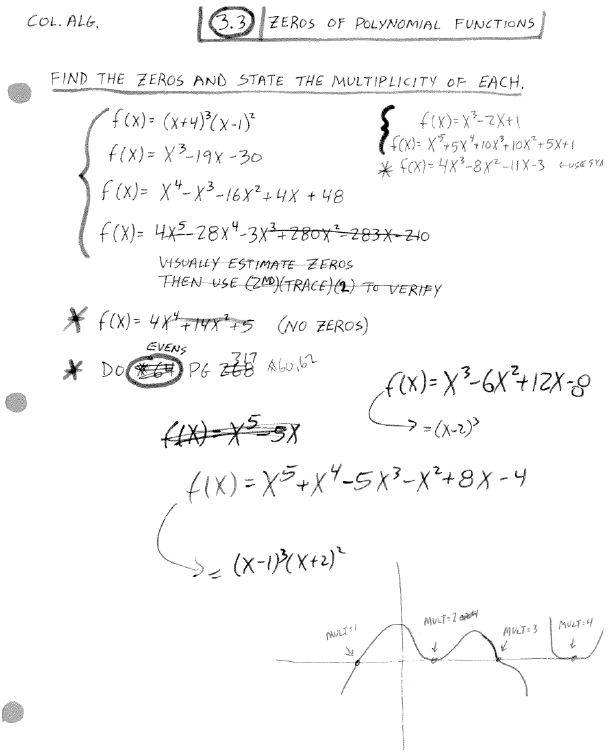 COL. ALG.
3.3 ZEROS OF POLYNOMIAL FUNCTIONS
FIND THE ZEROS AND STATE THE MULTIPLICITY OF EACH.
f(x) = (x+4)³(x-1)²
f(x) = x³-19x-30
f(x) = x⁴-x³-16x²+4x+48
f(x) = 4x⁵-28x⁴-3x³+280x²-283x-210
VISUALLY ESTIMATE ZEROS
THEN USE (2ND)(TRACE)(2) TO VERIFY
f(x) = x³-2x+1
f(x) = x⁵+5x⁴+10x³+10x²+5x+1
* f(x) = 4x³-8x²-11x-3 ←USE SYN
* f(x) = 4x⁴+14x²+5 (NO ZEROS)
EVENS
* DO #64 PG 268 317 #60,62
f(x) = x³-6x²+12x-8
= (x-2)³
f(x) = x⁵-5x
f(x) = x⁵+x⁴-5x³-x²+8x-4
= (x-1)³(x+2)²
MULT=1
MULT=2
MULT=3
MULT=4